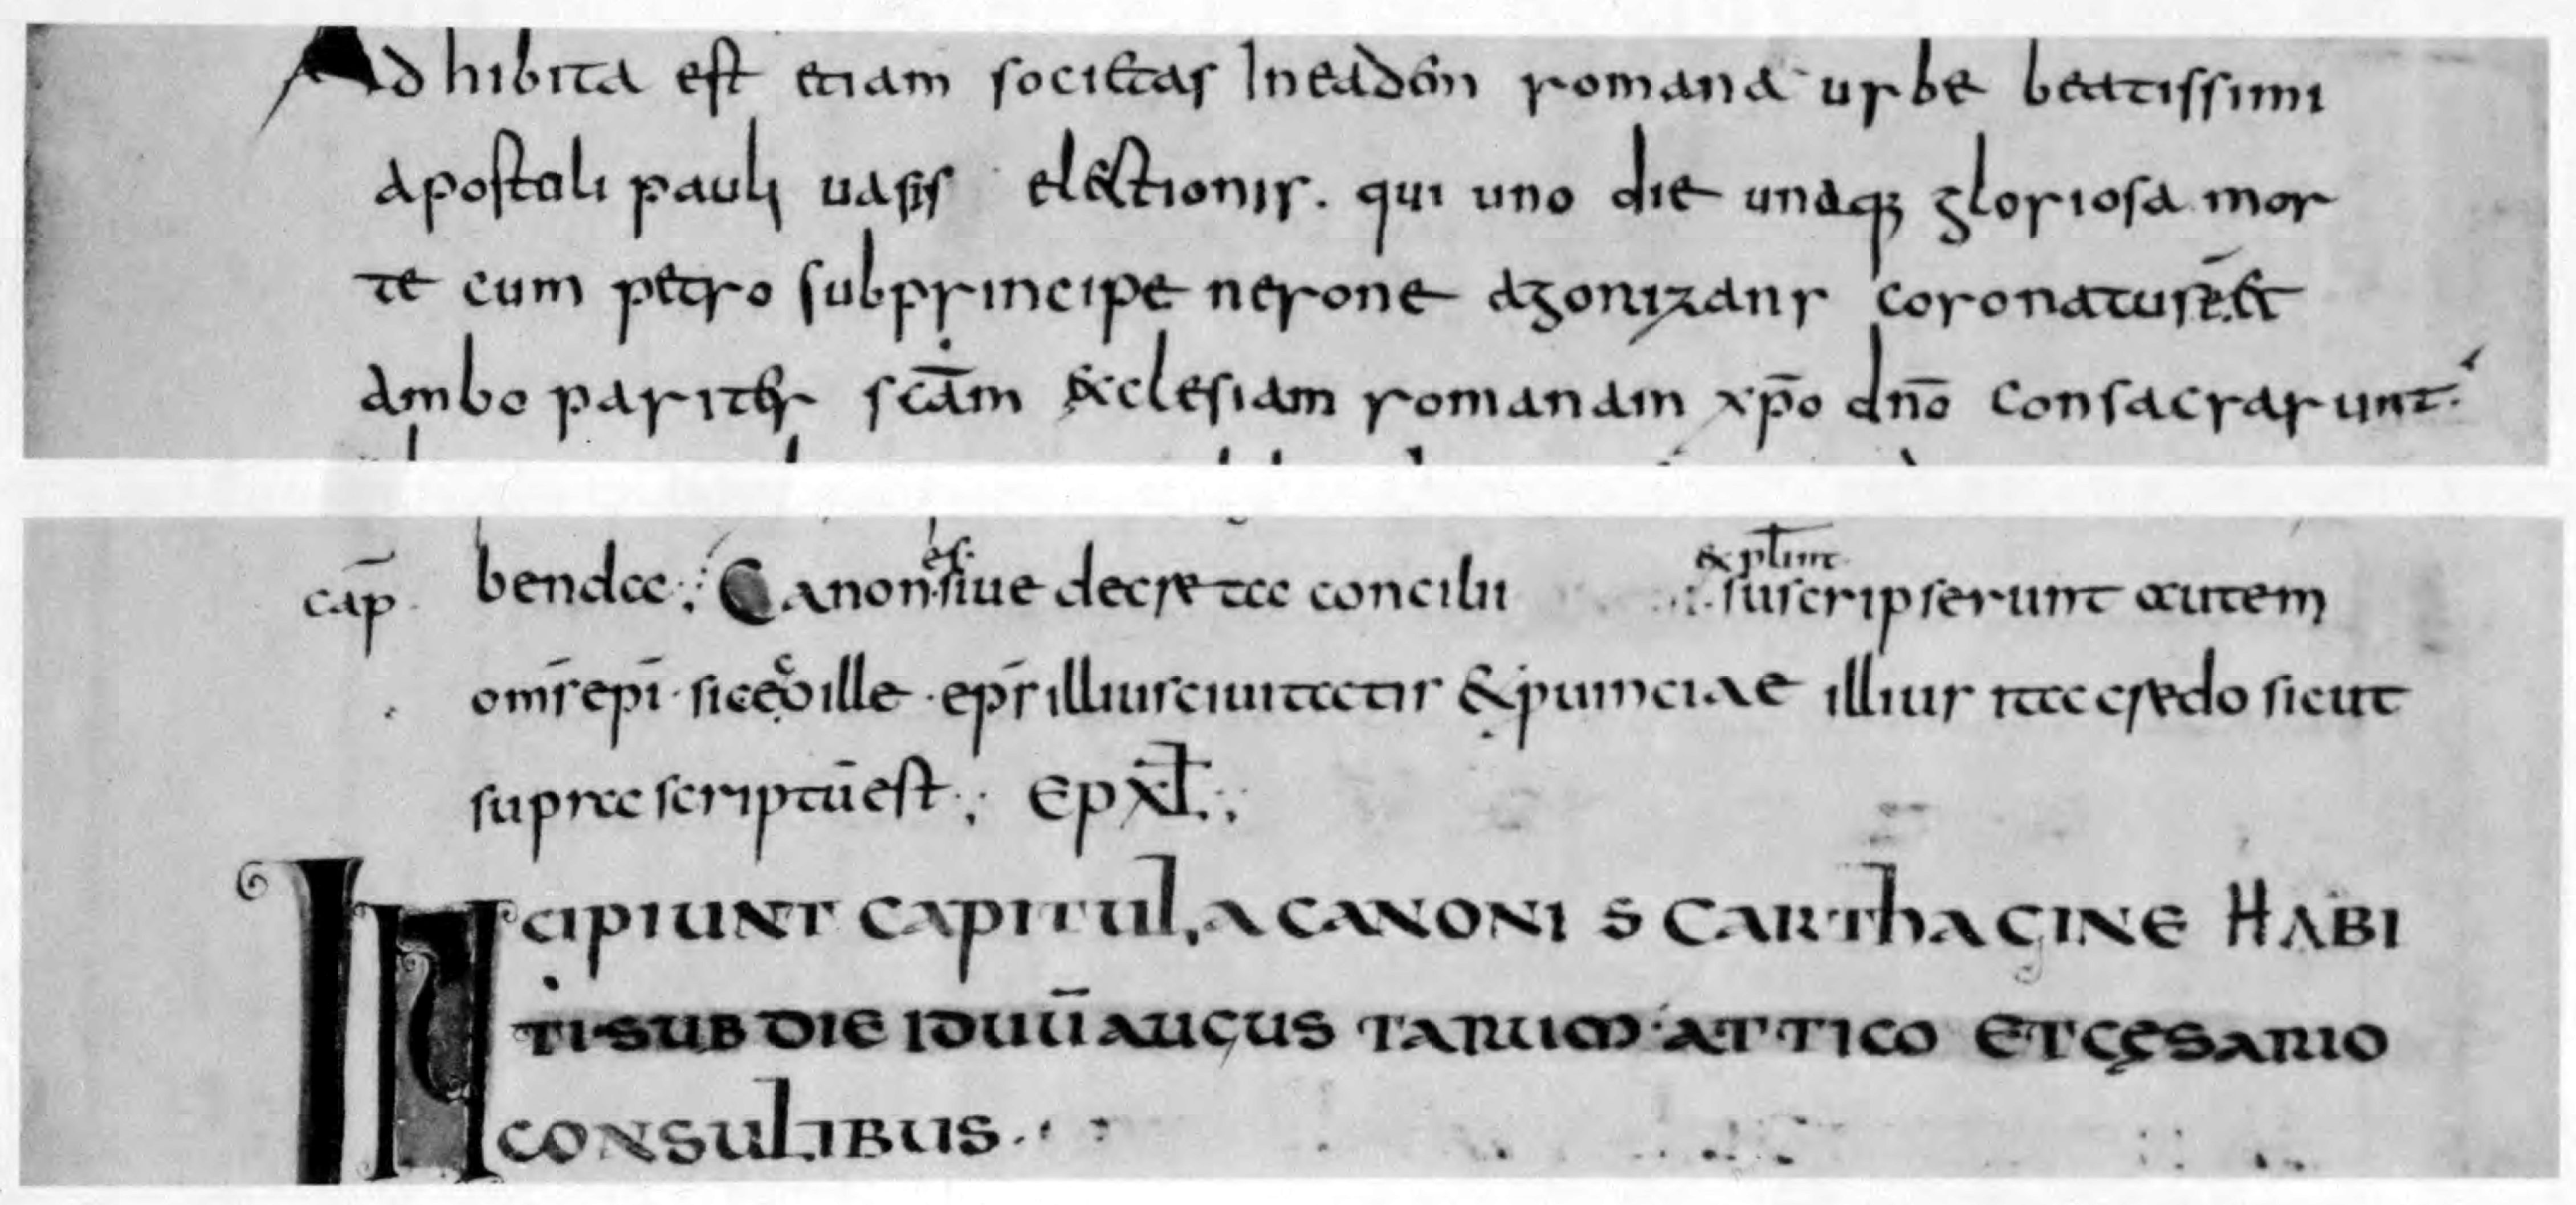 Adhibita est etiam societas In eadem romana urbe beatissimi
apostoli pauli uasis electionis. qui uno die unaq; gloriosa mor
te cum petro subprincipe nerone agonizans coronatus ē. &
ambo pariter scām ecclesiam romanam xp̄o dn̄o consacrarunt.
cap̄. benda:; Canones siue decreta concilii &plurit. suscripserunt autem
om̄s ep̄i. sic ego ille. ep̄s illius ciuitatis & puinciae illius ita credo sicut
supra scriptū est:; EpXL:;
INCIPIUNT CAPITUL, A CANONI S CARTHAGINE HABI
TI SUB DIE IDUŪ AUGUS TARUM ATTICO ET CĘSARIO
CONSULIBUS.